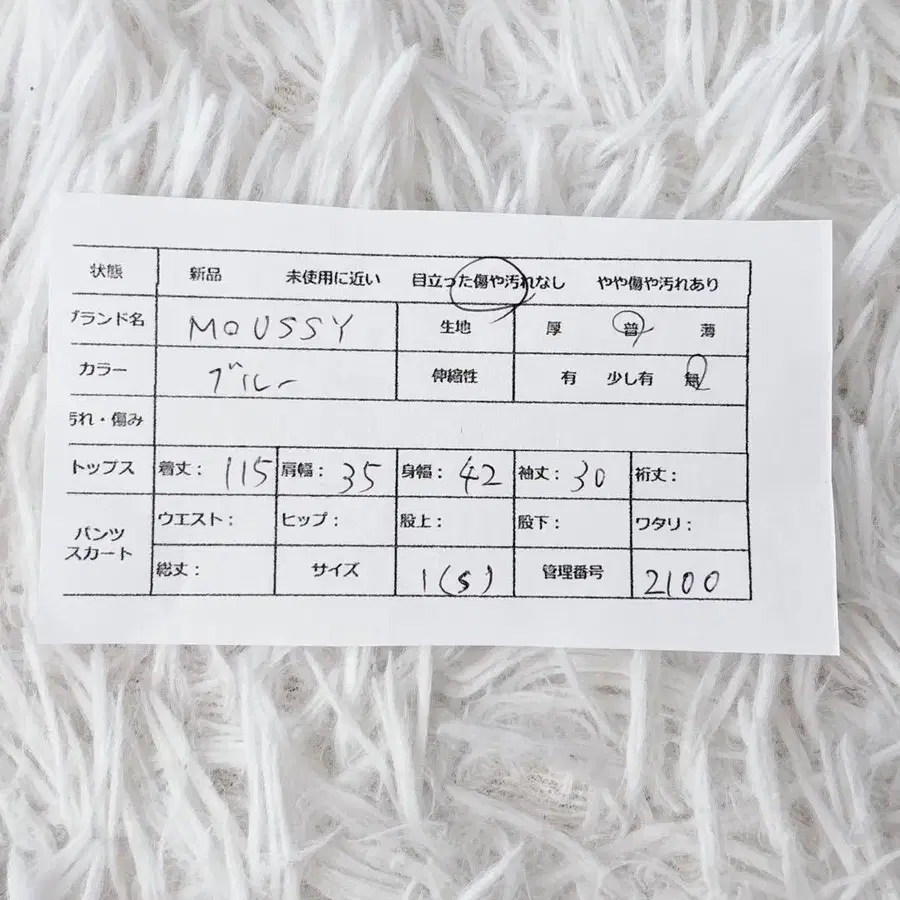 状態 新品 未使用に近い 目立った傷や汚れなし やや傷や汚れあり
ブランド名 MOUSSY 生地 厚 普 薄
カラー ブルー 伸縮性 有 少し有 無
汚れ・傷み
トップス 着丈: 115 肩幅: 35 身幅: 42 袖丈: 30 裄丈:
パンツ スカート ウエスト: ヒップ: 股上: 股下: ワタリ:
総丈: サイズ 1(S) 管理番号 2100